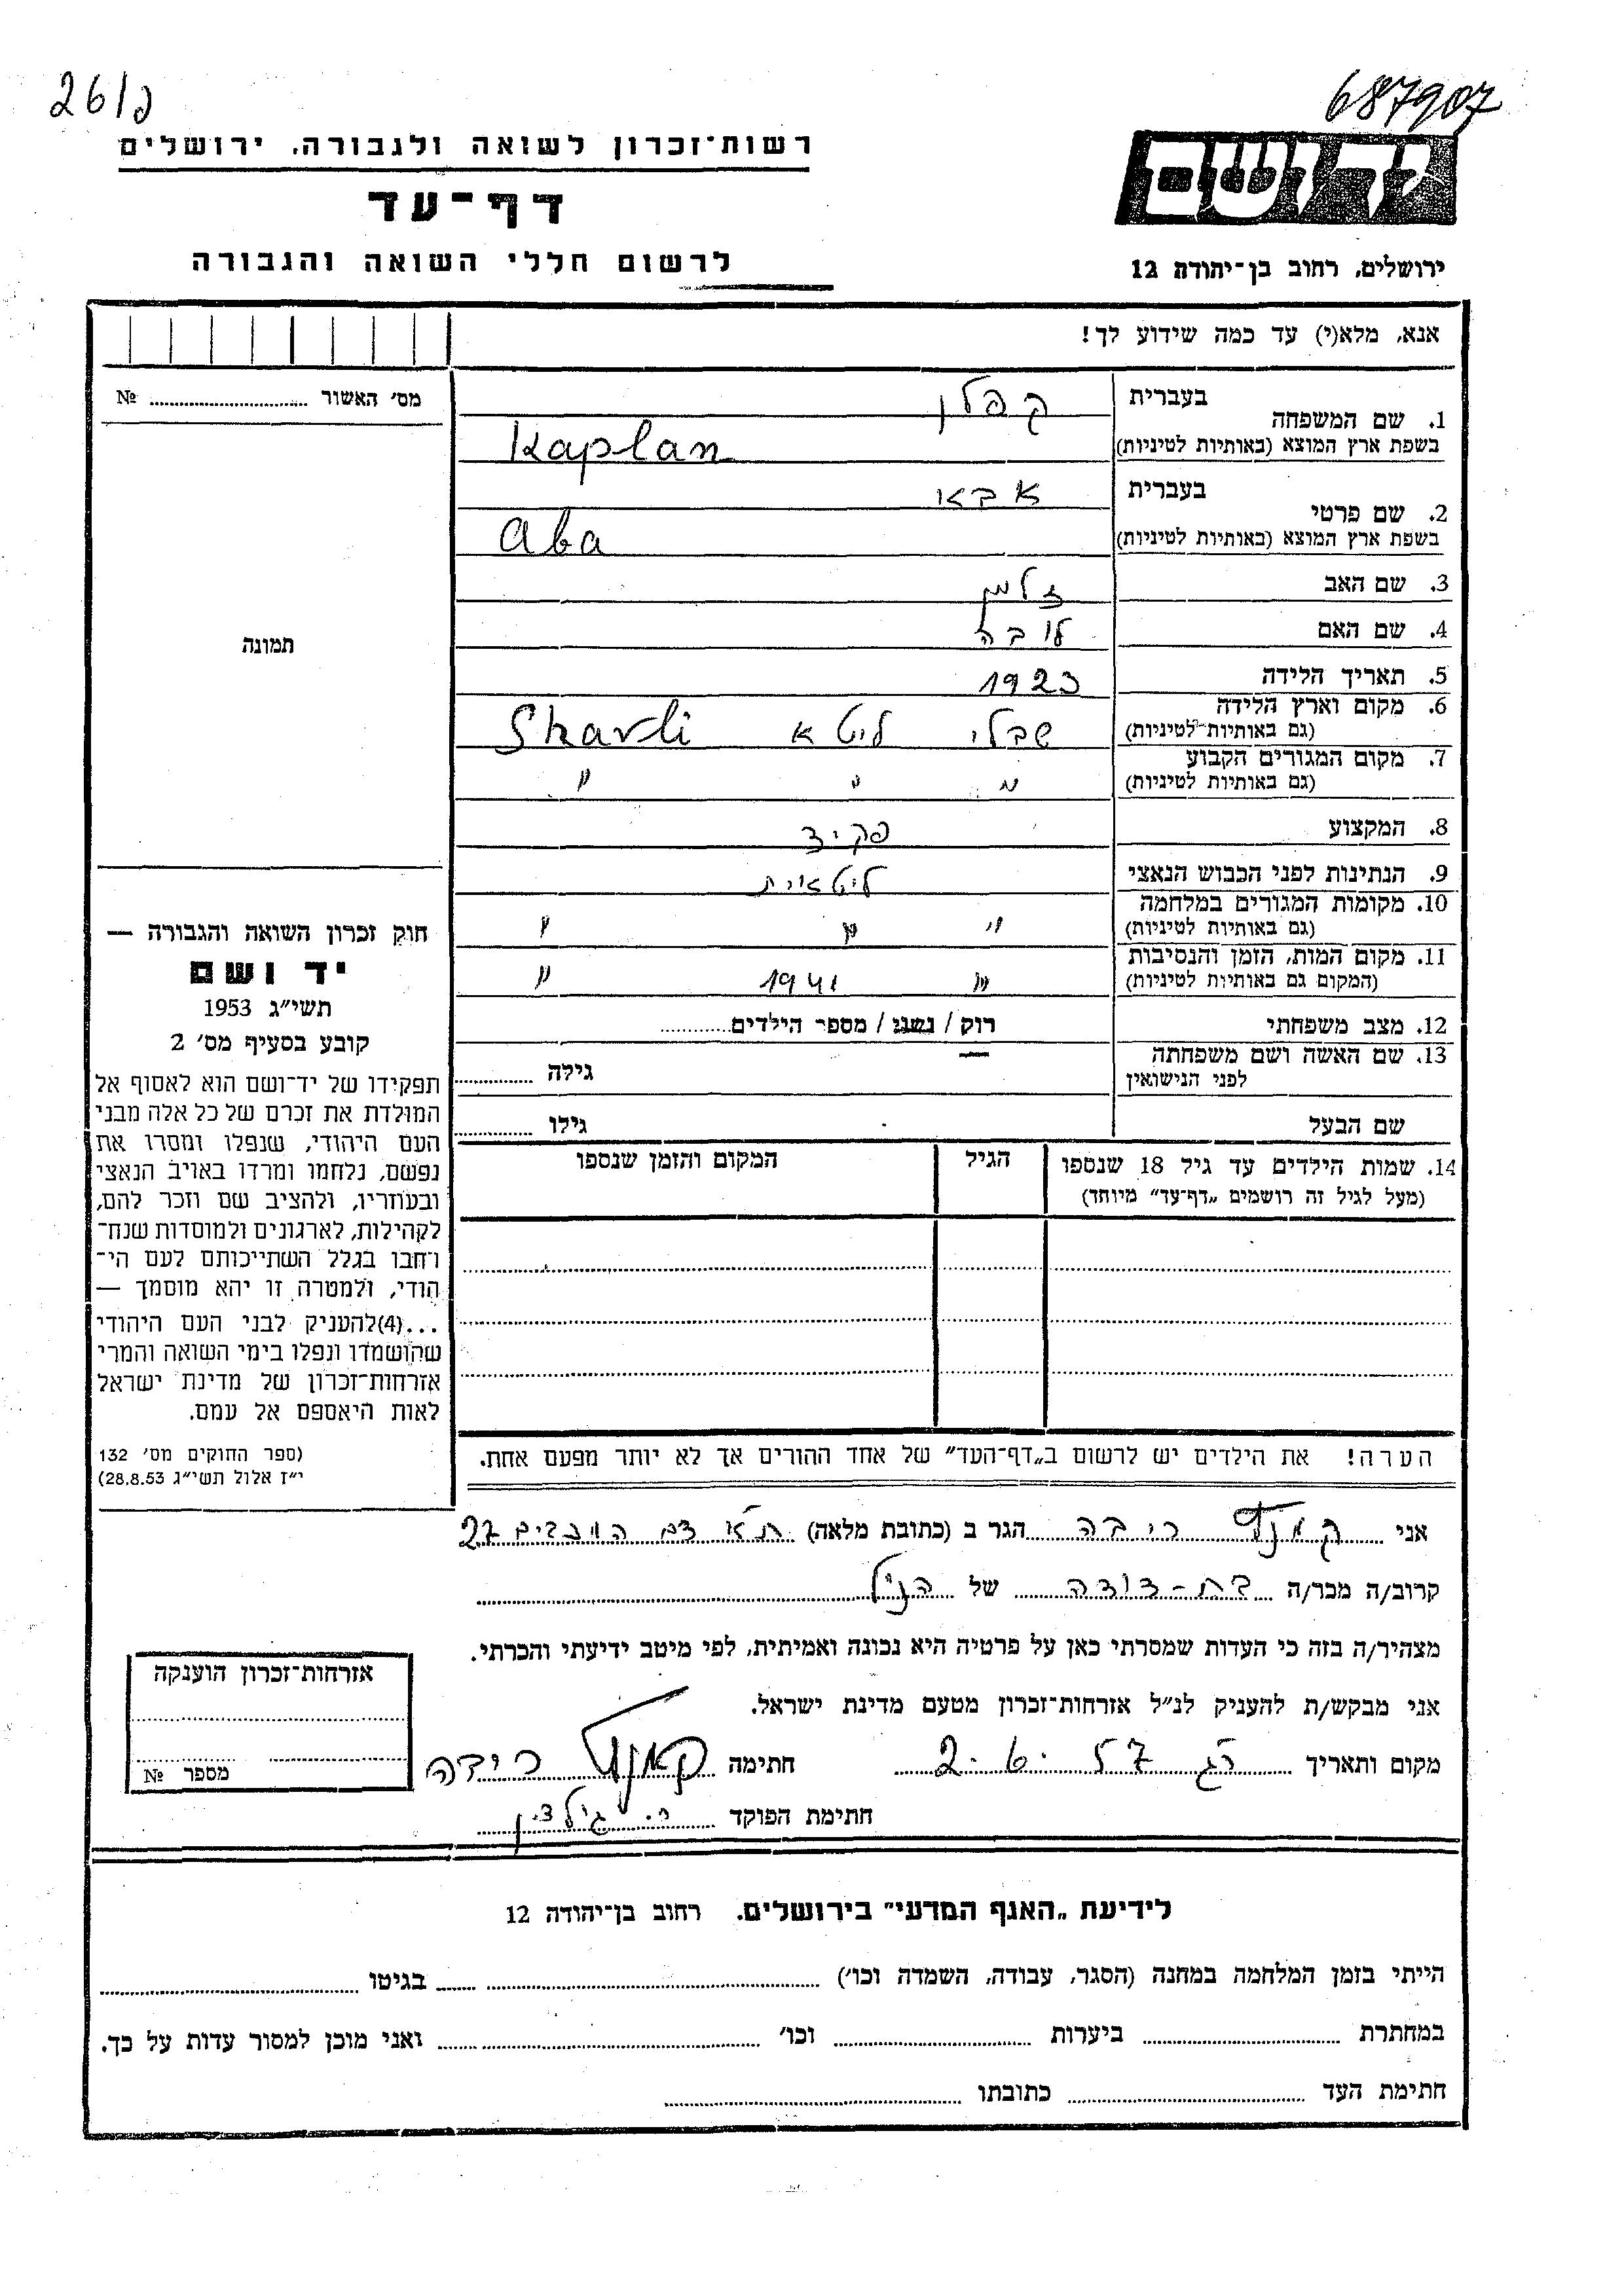 26/פ
687907
רשות־זכרון לשואה ולגבורה. ירושלים
יד ושם
דף־עד
לרשום חללי השואה והגבורה
ירושלים, רחוב בן־יהודה 12
אנא, מלא(י) עד כמה שידוע לך!
מס׳ האשור № ........
1. שם המשפחה בעברית קפלן
בשפת ארץ המוצא (באותיות לטיניות) Kaplan
2. שם פרטי בעברית אבא
בשפת ארץ המוצא (באותיות לטיניות) Aba
3. שם האב זלמן
4. שם האם ליבה
תמונה
5. תאריך הלידה 1923
6. מקום וארץ הלידה (גם באותיות לטיניות) שבלי ליטא Shavli
7. מקום המגורים הקבוע (גם באותיות לטיניות) " " "
8. המקצוע פקיד
9. הנתינות לפני הכבוש הנאצי ליטאית
10. מקומות המגורים במלחמה (גם באותיות לטיניות) " " "
11. מקום המות, הזמן והנסיבות (המקום גם באותיות לטיניות) " 1941 "
12. מצב משפחתי רוק / נשוי / מספר הילדים........
13. שם האשה ושם משפחתה לפני הנישואין — גילה ........
שם הבעל גילו ........
חוק זכרון השואה והגבורה —
יד ושם
תשי״ג 1953
קובע בסעיף מס׳ 2
תפקידו של יד־ושם הוא לאסוף אל
המולדת את זכרם של כל אלה מבני
העם היהודי, שנפלו ומסרו את
נפשם, נלחמו ומרדו באויב הנאצי
ובעוזריו, ולהציב שם וזכר להם,
לקהילות, לארגונים ולמוסדות שנח־
רבו בגלל השתייכותם לעם הי־
הודי, ולמטרה זו יהא מוסמך —
...(4) להעניק לבני העם היהודי
שהושמדו ונפלו בימי השואה והמרי
אזרחות־זכרון של מדינת ישראל
לאות היאספם אל עמם.
(ספר החוקים מס׳ 132
י״ז אלול תשי״ג 28.8.53)
14. שמות הילדים עד גיל 18 שנספו הגיל המקום והזמן שנספו
(מעל לגיל זה רושמים „דף־עד״ מיוחד)
הערה! את הילדים יש לרשום ב„דף־העד״ של אחד ההורים אך לא יותר מפעם אחת.
אני ריבה הגר ב (כתובת מלאה) ת״א 27
קרוב/ה מכר/ה בת-דודה של הנ״ל
מצהיר/ה בזה כי העדות שמסרתי כאן על פרטיה היא נכונה ואמיתית, לפי מיטב ידיעתי והכרתי.
אני מבקש/ת להעניק לנ״ל אזרחות־זכרון מטעם מדינת ישראל.
מקום ותאריך רג 2.6.57 חתימה
חתימת הפוקד
אזרחות־זכרון הוענקה
מספר №
לידיעת „האגף המדעי״ בירושלים. רחוב בן־יהודה 12
הייתי בזמן המלחמה במחנה (הסגר, עבודה, השמדה וכו׳) ........ בגיטו ........
במחתרת ........ ביערות ........ וכו׳ ........ ואני מוכן למסור עדות על כך.
חתימת העד ........ כתובתו ........